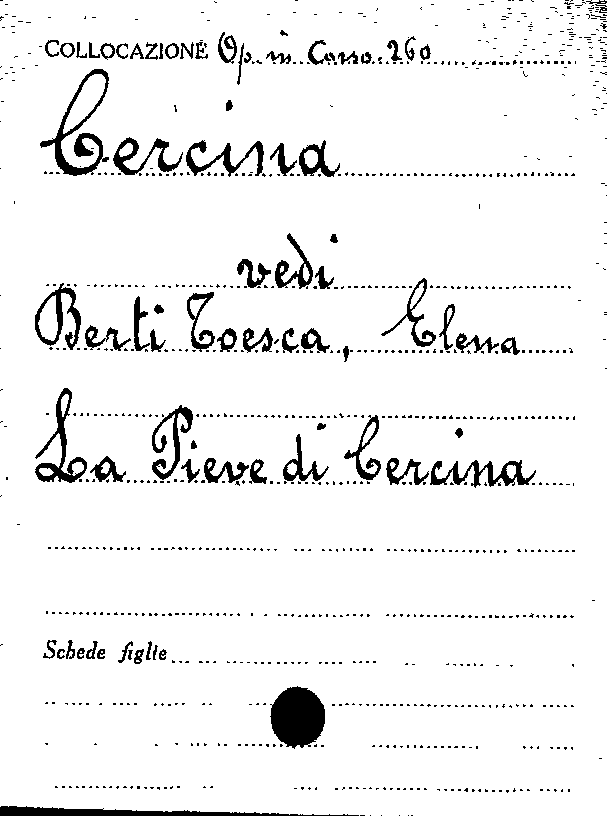 COLLOCAZIONE Op. in Corso. 260
Cercina
vedi
Berti Toesca, Elena
La Pieve di Cercina
Schede figlie